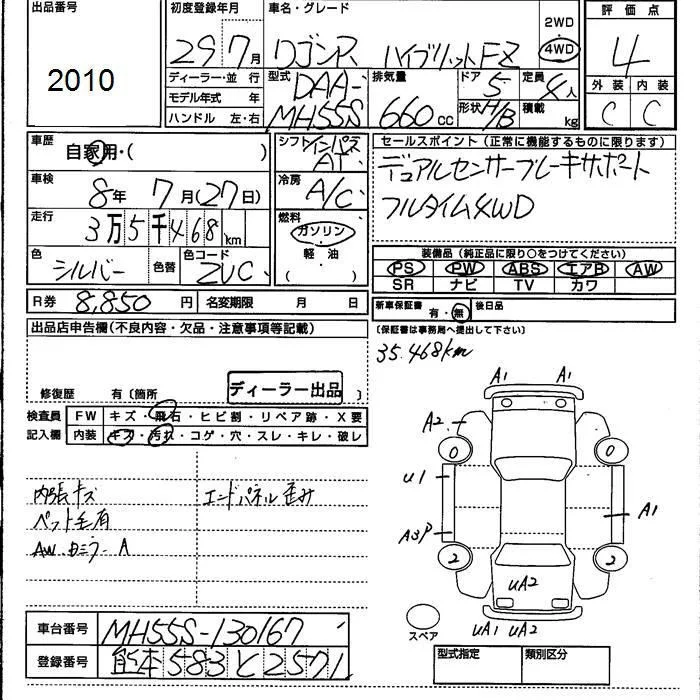 出品番号
2010
初度登録年月
29年7月
車名・グレード
ワゴンR ハイブリットFZ
2WD
4WD
評価点
4
外装 内装
C C
ディーラー・並 行
モデル年式 年
ハンドル 左・右
型式
DAA-
MH55S
排気量
660cc
ドア
5
形状 H/B
定員
4人
積載
kg
車歴
自家用・( )
車検
8年 7月(27日)
走行
3万5千468km
色
シルバー
色替
色コード
ZVC
シフト インパネ
AT
冷房
A/C
燃料
ガソリン
(軽・油)
セールスポイント(正常に機能するものに限ります)
デュアルセンサーブレーキサポート
フルタイム4WD
装備品(純正品に限り○をつけてください)
PS PW ABS エアB AW
SR ナビ TV カワ
R券 8,850円 名変期限 月 日
新車保証書 有・無 後日品
(保証書は事務局へ提出して下さい)
出品店申告欄(不良内容・欠品・注意事項等記載)
修復歴 有〔箇所 ディーラー出品 〕
35.468km
検査員
記入欄
FW キズ・飛石・ヒビ割・リペア跡・X要
内装 キズ・汚れ・コゲ・穴・スレ・キレ・破レ
内張キズ
ペット毛有
AW・ミラーA
エンドパネル歪み
A1 A1
A2
0 0
U1
A1
A3P
2 2
UA2
UA1 UA2
スペア
車台番号 MH55S-130167
登録番号 熊本583と2571
型式指定 類別区分